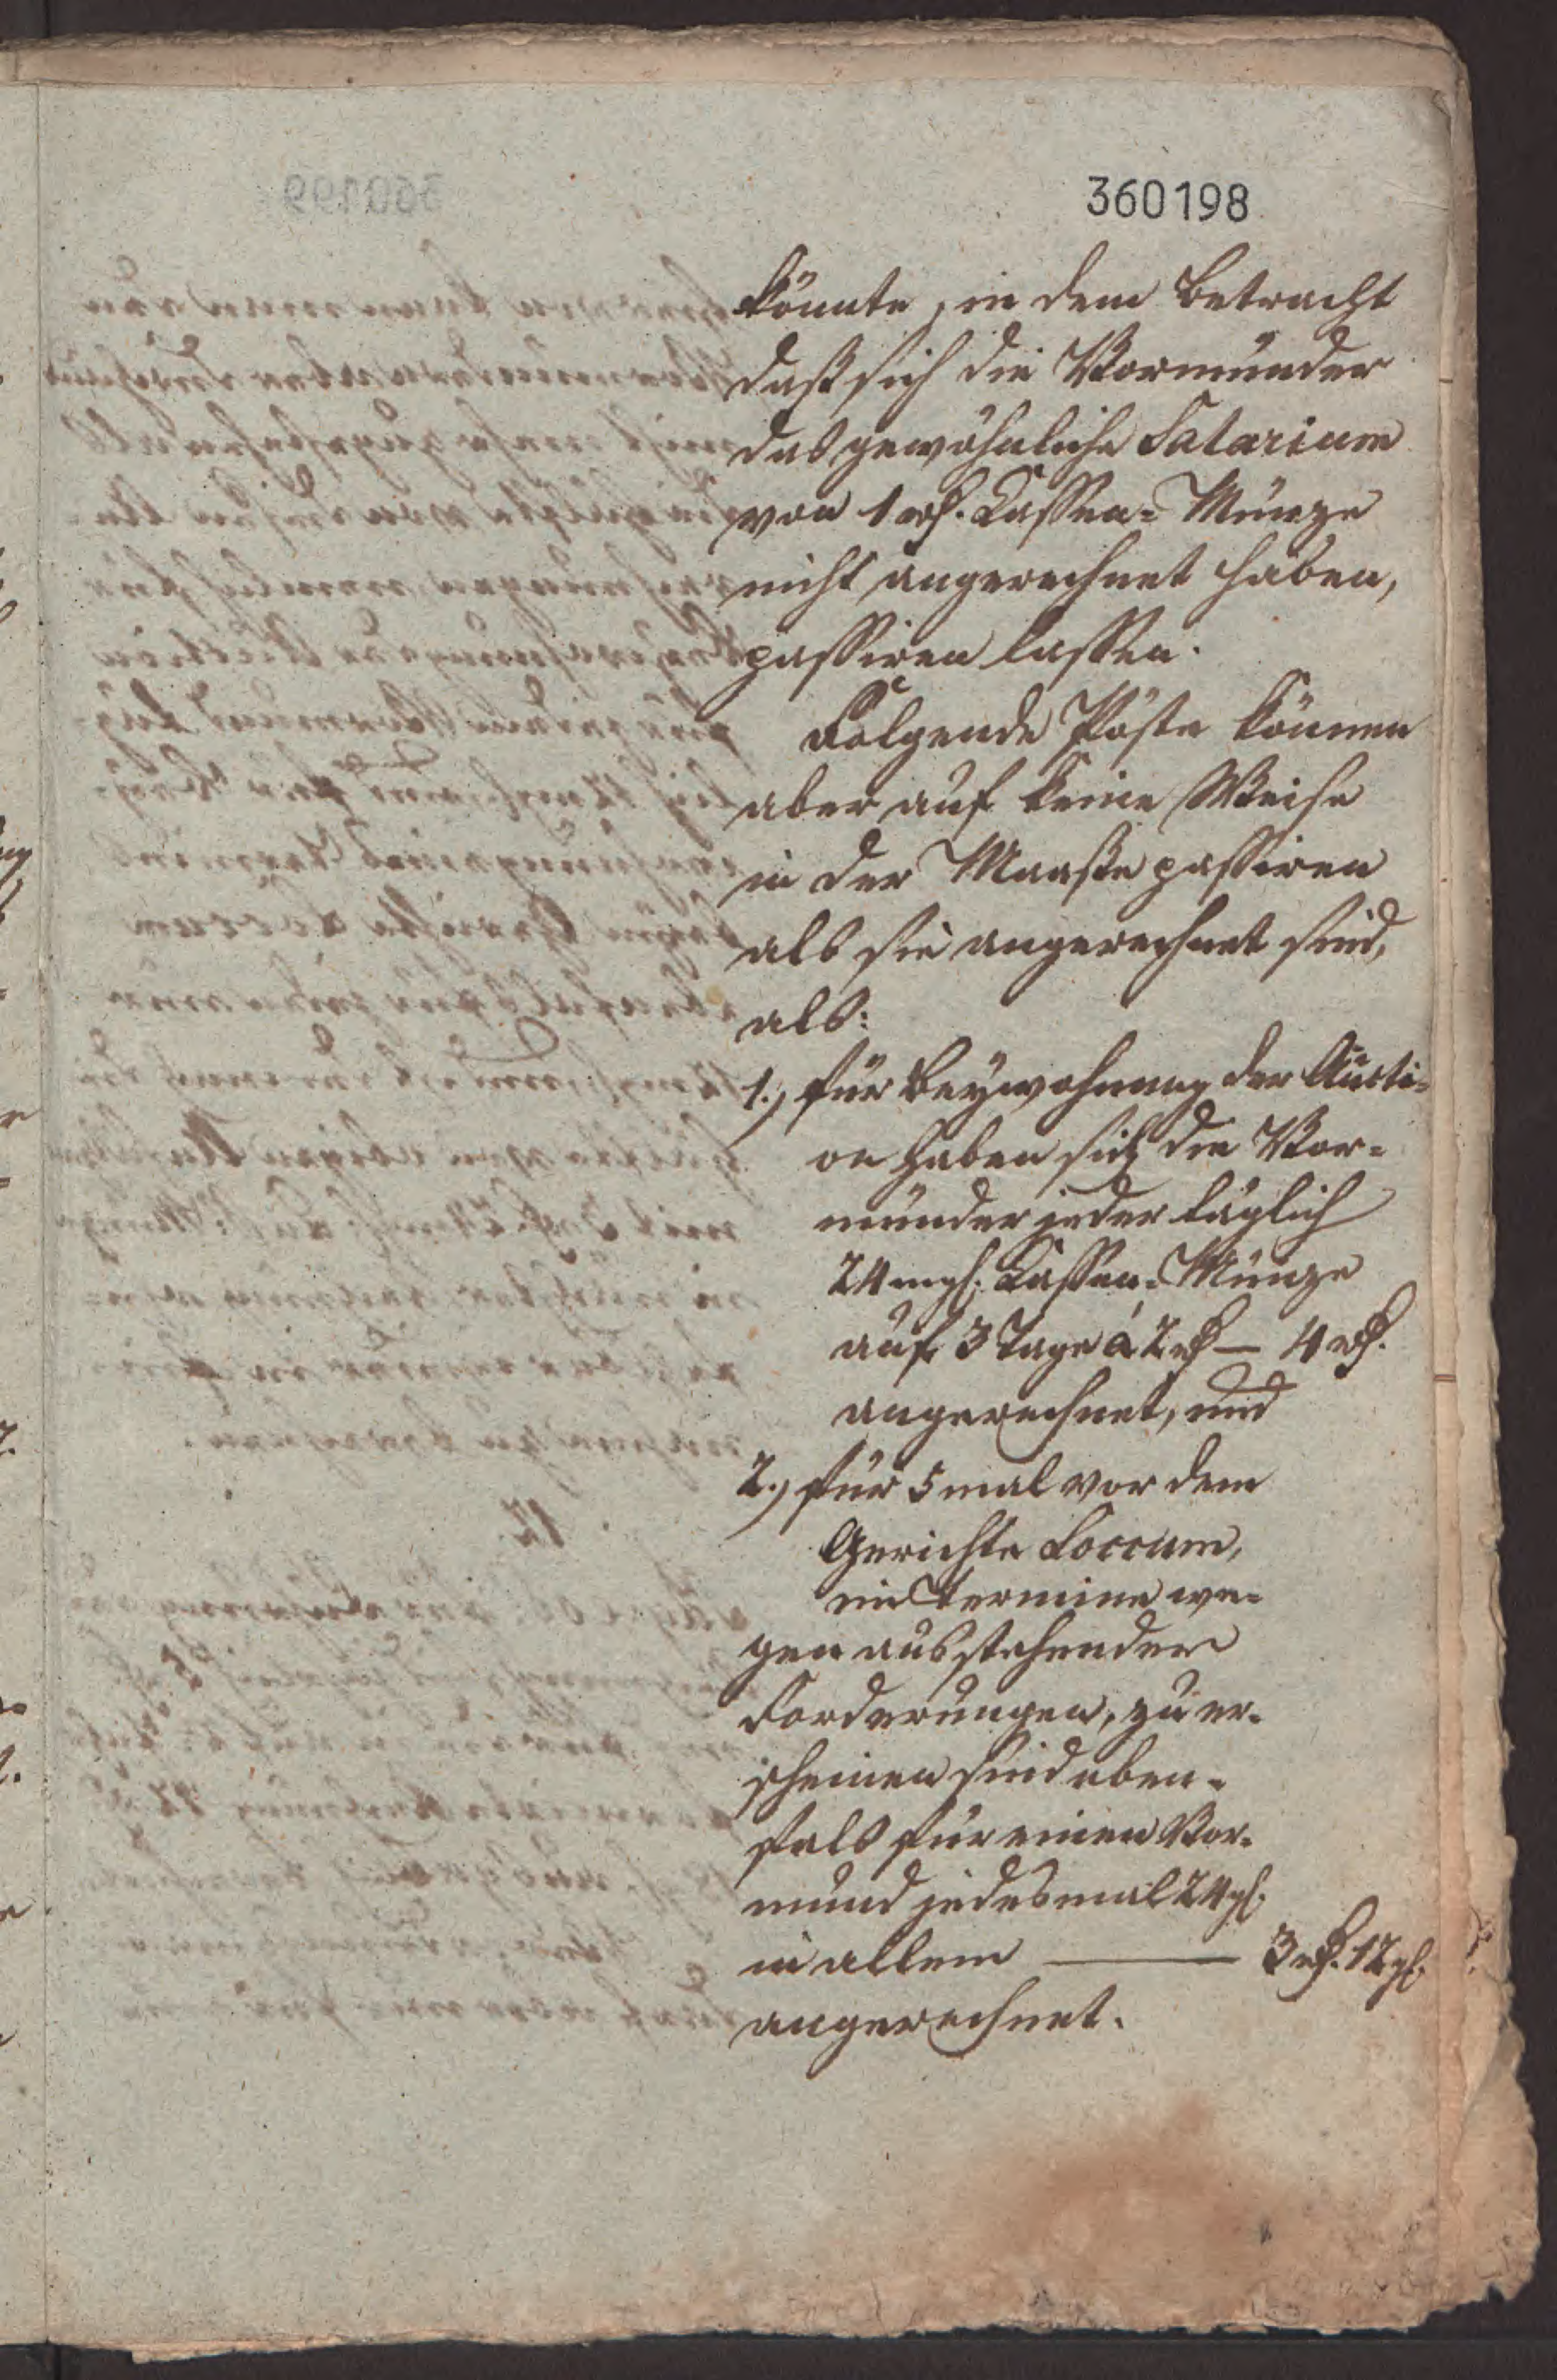 360198
könnte, in dem Betracht
daß sich die Vormünder
das gewöhnliche Salarium
von 1 rthl. Cassen-Münze
nicht angerechnet haben,
passiren lassen.
Folgende Pöste können
aber auf keine Weise
in der Maaße passiren
als sie angerechnet sind,
als:
1., für Beywohnung der Aucti-
on haben sich die Vor-
münder jeder täglich
24 mgl. Cassen-Münze
auf 3 Tage á 2 rthl — 4 rthl.
angerechnet, und
2., für 5 mal vor dem
Gerichte Loccum,
im Termine we-
gen ausstehender
Forderungen, zu er-
scheinen sind eben-
fals für einen Vor-
mund jedesmal 24 gl.
in allem — 3 rthl. 12 gl.
angerechnet.